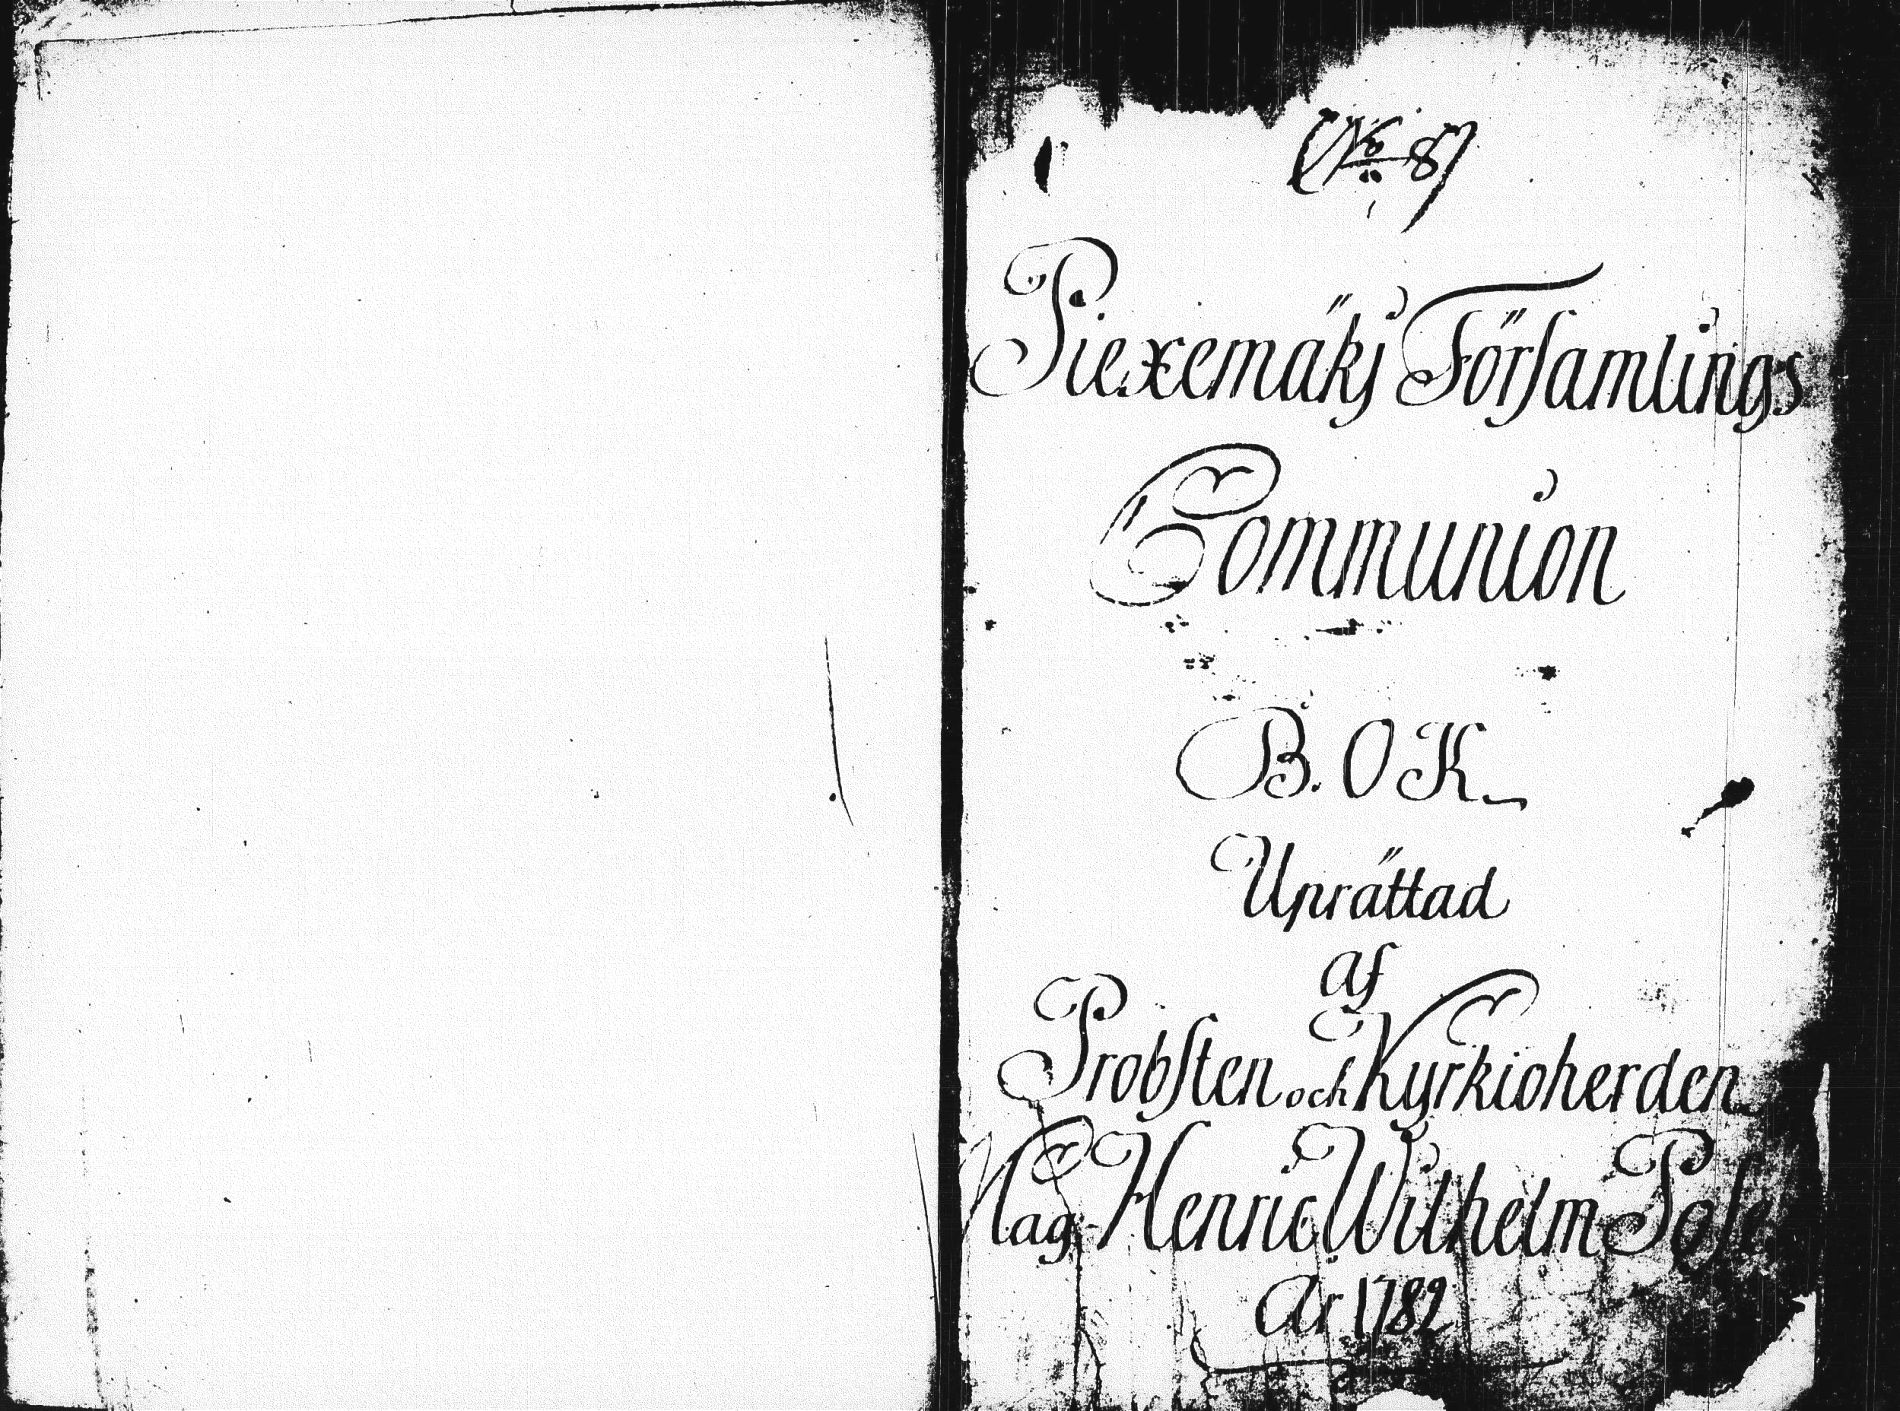 (No 8)
Piexemäkj Församlings
Communion
B. O K
Uprättad
af
Probsten och Kyrkioherden
Mag: Henric Wilhelm Pose
År 1782